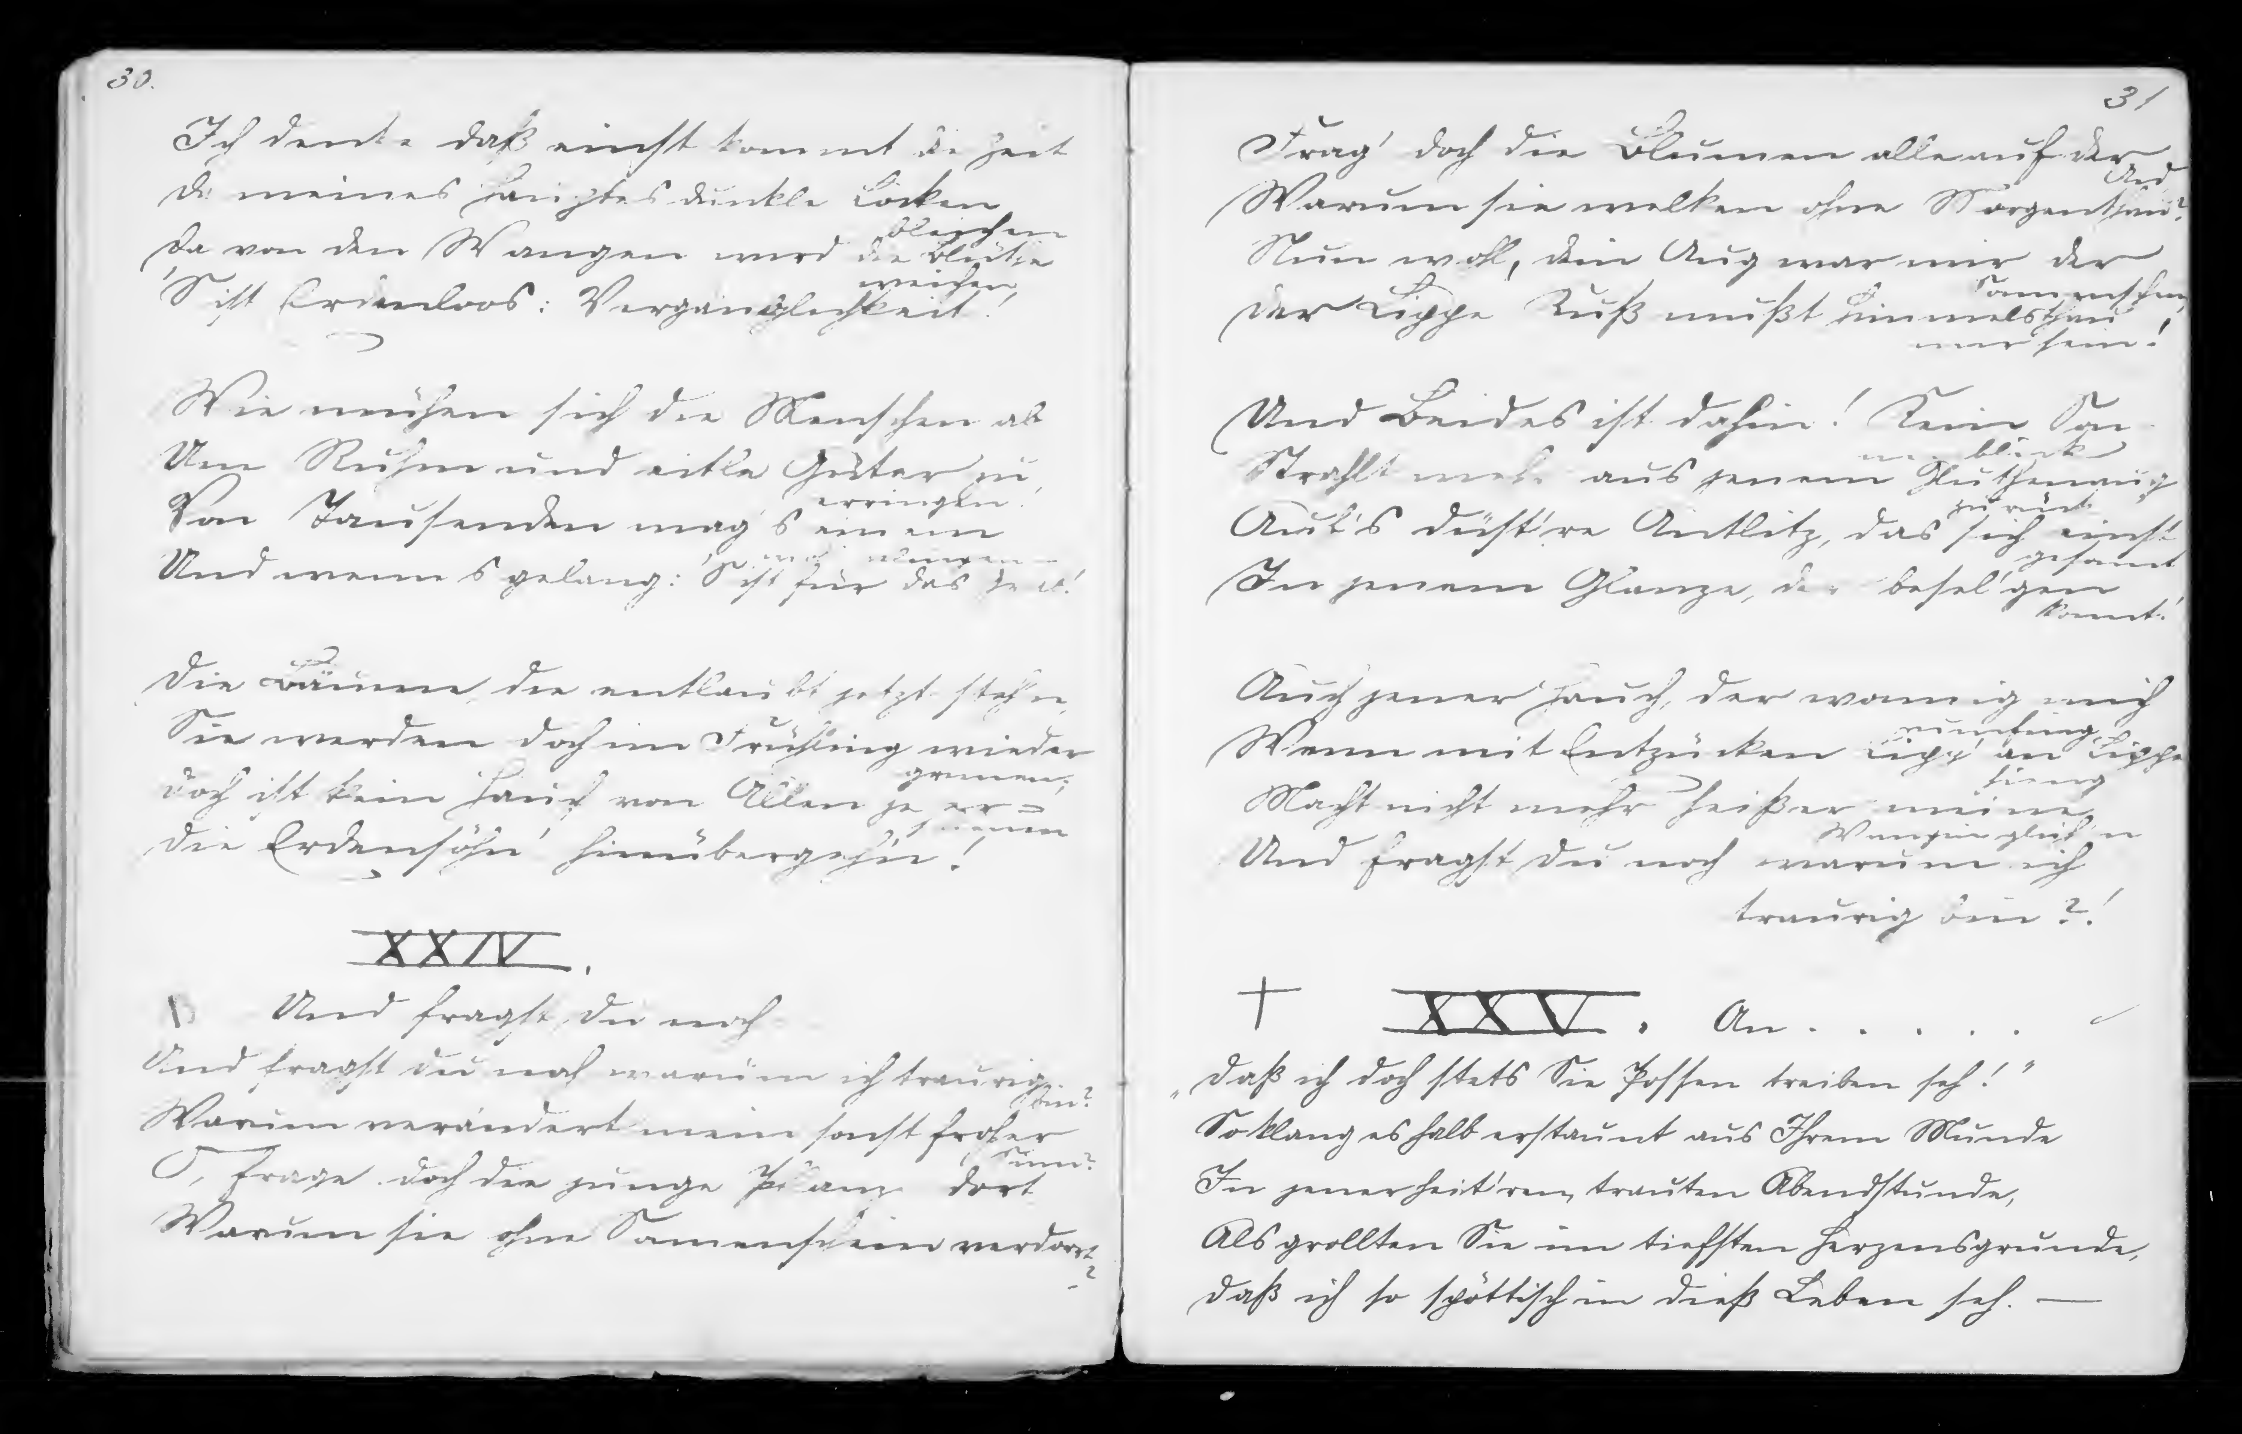 30.
Ich denke daß einst kommt die Zeit
Da meines Hauptes dunkle Locken
bleichen
Da von den Wangen wird die Blüthe
weichen,
'S ist Erdenloos: Vergänglichkeit!
Wie mühen sich die Menschen ab
Um Ruhm und eitle Güter zu
erringen!
Von Tausenden mag's einem
wohl gelingen –
Und wenn's gelang: 'S ist für das Grab!
Die Bäume, die entlaubt jetzt stehn,
Sie werden doch im Frühling wieder
grünen;
Doch ist kein Hauch von Allen je er=
schienen
Die Erdensöhn' hinübergeh'n!
XXIV.
Und fragst du noch
Und fragst du noch warum ich traurig
bin?
Warum verändert mein sonst froher
Sinn?
O, frage doch die junge Pflanz' dort
Warum sie ohne Sonnenschein verdorrt
?
31
Frag' doch die Blumen alle auf der
Au'
Warum sie welken ohne Morgenthau?
Nun wohl, dein Aug war mir der
Sonnenschein,
Der Lippe Kuß mußt Himmelsthau
mir sein!
Und Beides ist dahin! Kein Son-
nenblick
Strahlt mehr aus jenem Gluthenaug'
zurück
Auf's düst're Antlitz, das sich einst
gesonnt
In jenem Glanze, der besel'gen
konnt'!
Auch jener Hauch, der wonnig mich
umfing
Wenn mit Entzücken Lipp' an Lippe
hieng
Macht nicht mehr heißer meine
Wangen glüh'n
Und fragst du noch warum ich
traurig bin?!
† XXV. An . . . . .
„Daß ich doch stets Sie Possen treiben seh!"
So klang es halb erstaunt aus Ihrem Munde
In jener heit'ren, trauten Abendstunde,
Als grollten Sie im tiefsten Herzensgrunde,
Daß ich so spöttisch in dieß Leben seh. —